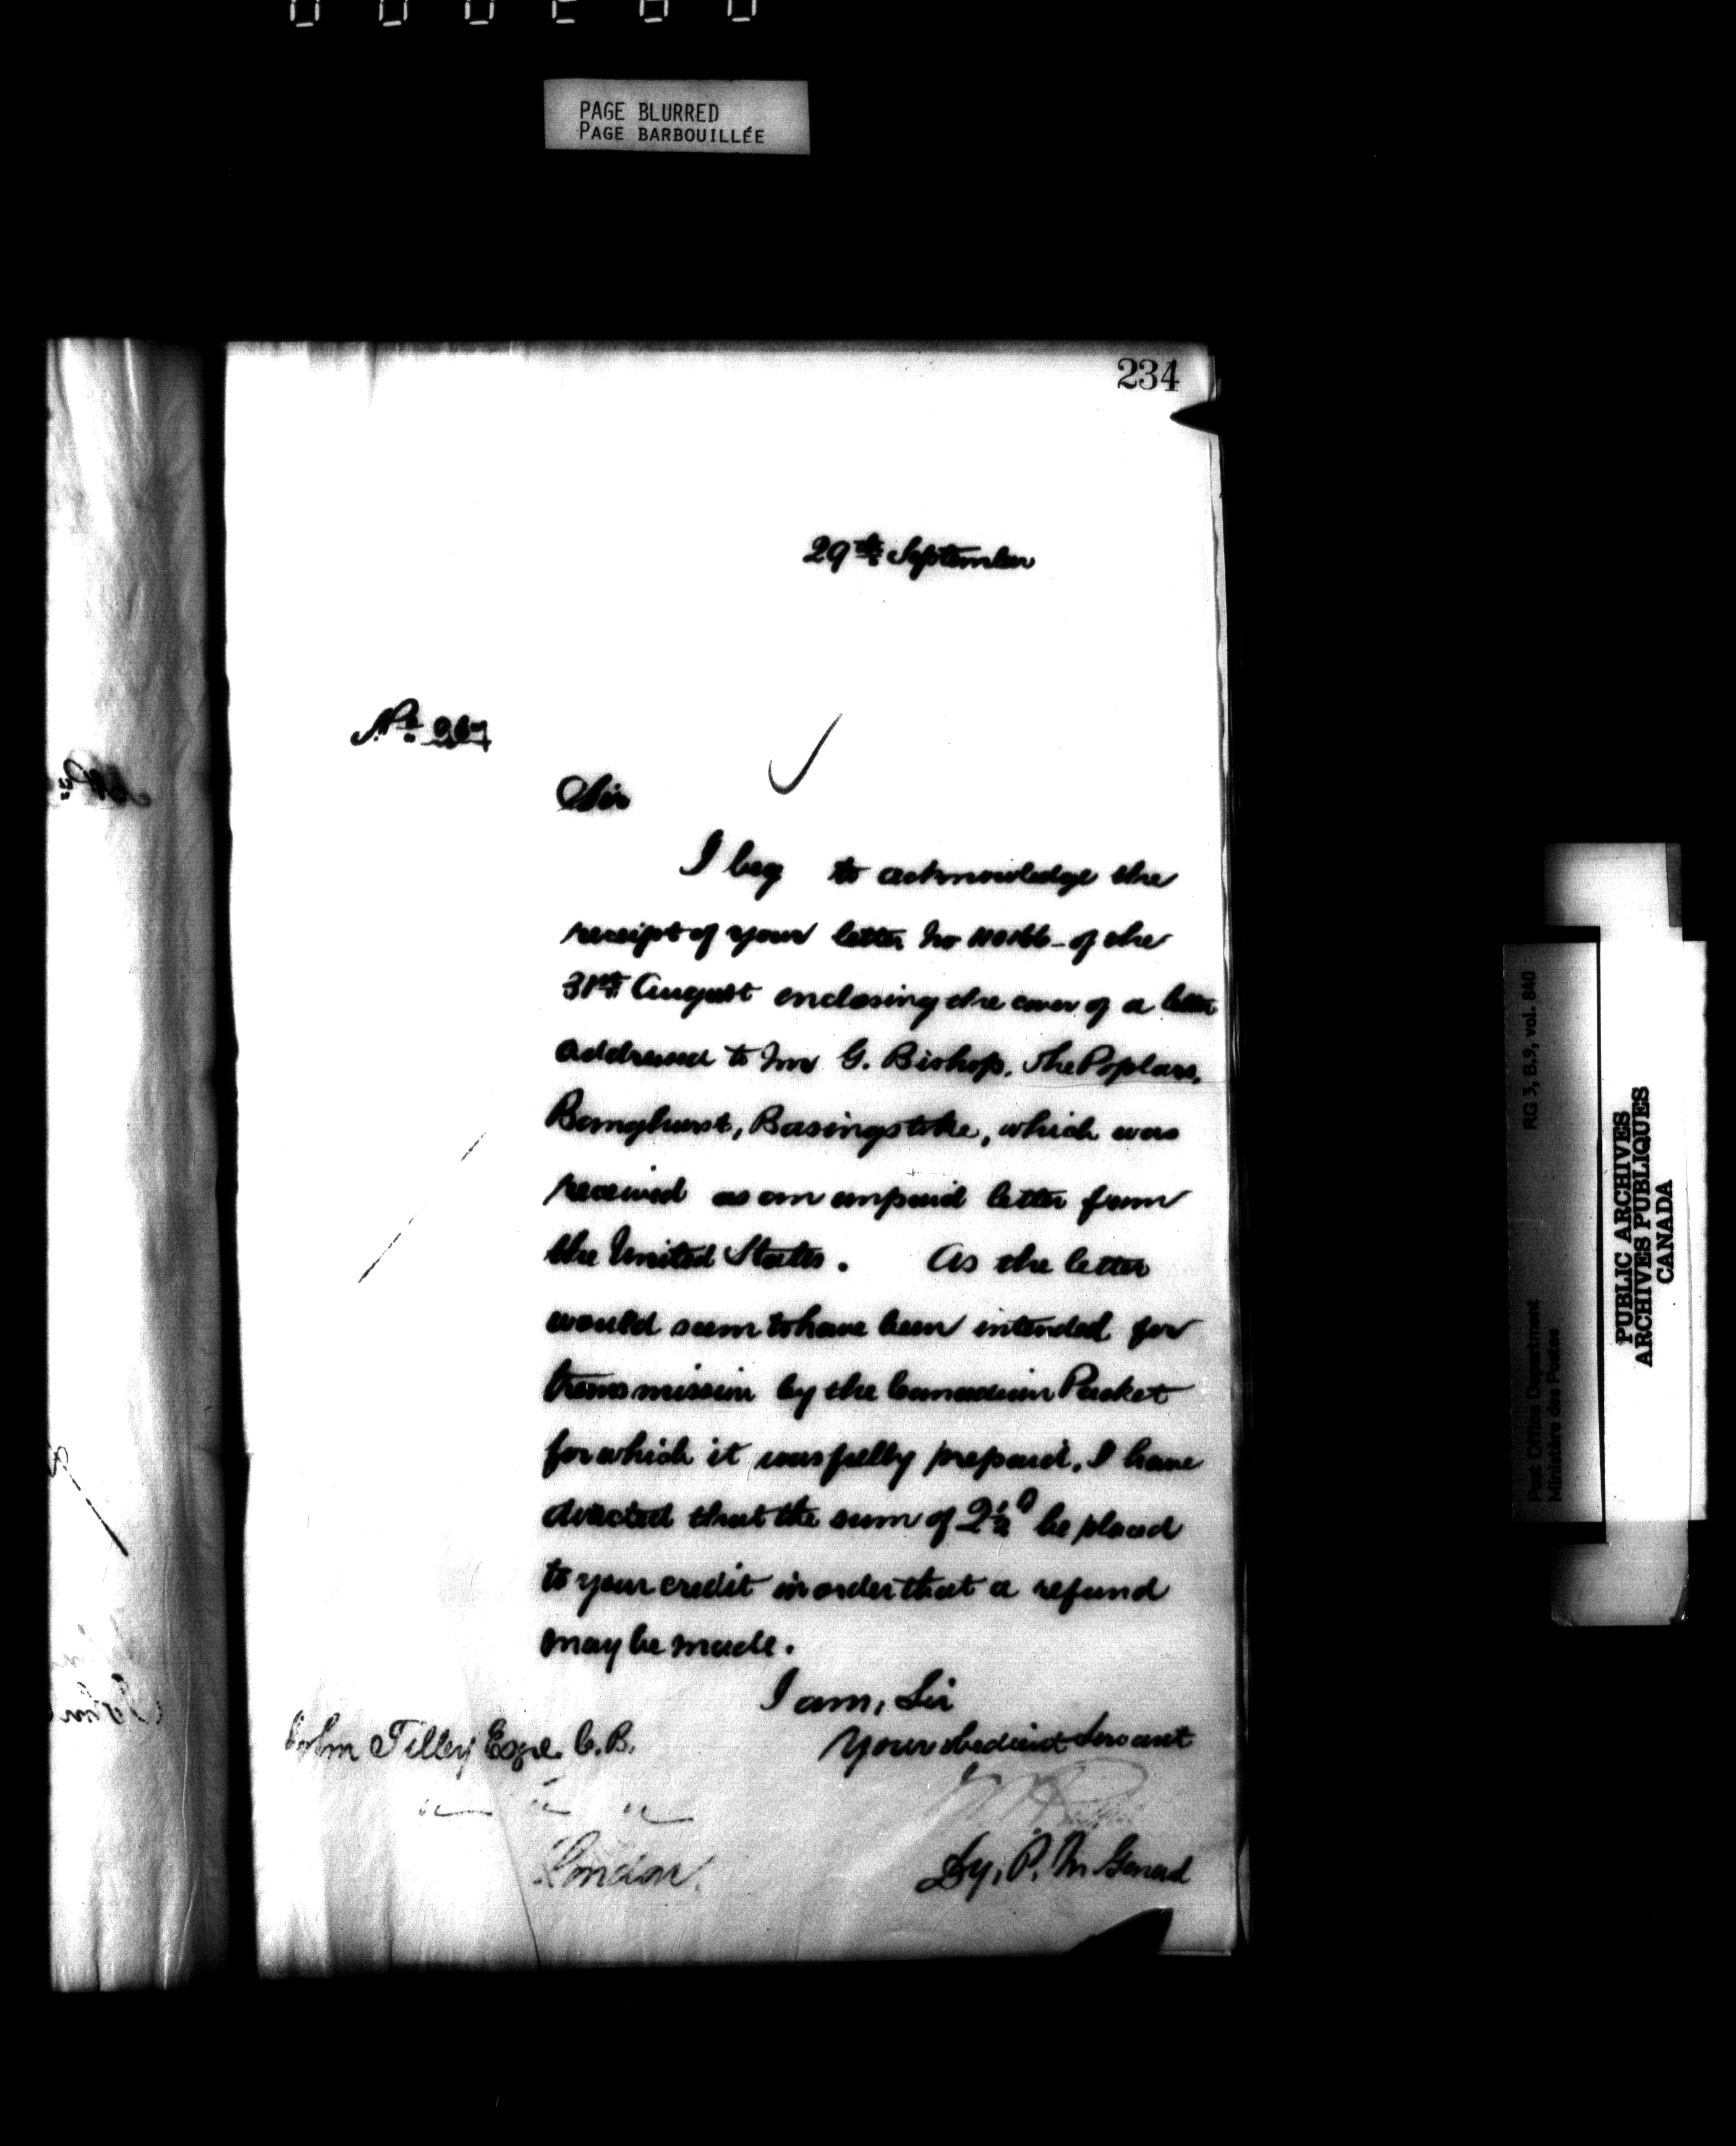 PAGE BLURRED
PAGE BARBOUILLÉE
234
29th September
No. 267
Sir
I beg to acknowledge the
receipt of your letter No 110166 - of the
31st August enclosing the cover of a letter
addressed to Mr G. Bishop, The Poplars,
Baughurst, Basingstoke, which was
received as an unpaid letter from
the United States. As the letter
would seem to have been intended for
transmission by the Canadian Packet
for which it was fully prepaid, I have
directed that the sum of 2½d be placed
to your credit in order that a refund
may be made.
I am, Sir
Your obedient Servant
John Tilley Esqre. C.B.
" " "
London.
Dy. P. M. General
RG 3, B.9, vol. 840
Post Office Department
Ministère des Postes
PUBLIC ARCHIVES
ARCHIVES PUBLIQUES
CANADA